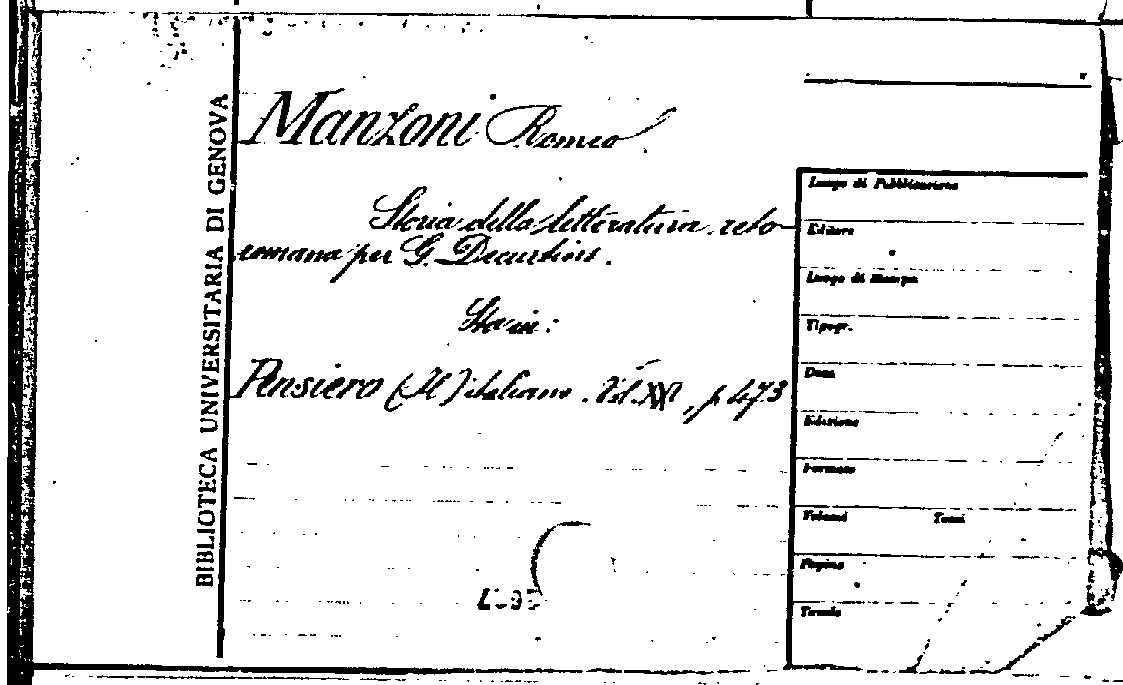 BIBLIOTECA UNIVERSITARIA DI GENOVA
Manzoni Romeo
Storia della letteratura reto-
romana per G. Decurtins.
Sta in:
Pensiero (Il) italiano. Vol. XVI, p. 473
Luogo di Pubblicazione
Editore
Luogo di Stampa
Tipogr.
Data
Edizione
Formato
Volumi Tomi
Pagine